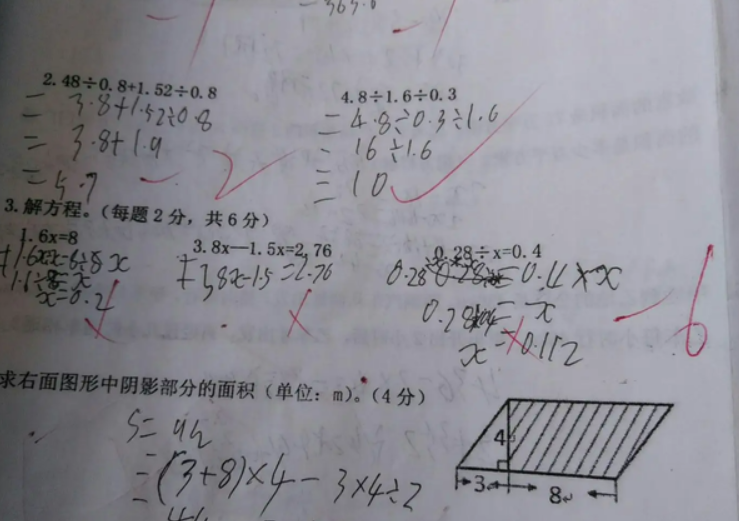 363.6
2.48÷0.8+1.52÷0.8
4.8÷1.6÷0.3
= 3.8+1.52÷0.8
= 4.8÷0.3÷1.6
= 3.8+1.9
= 16÷1.6
= 5.7
= 10
-2
3.解方程。(每题2分，共6分)
1.6x=8
3.8x—1.5x=2.76
0.28÷x=0.4
3.8x-1.5=2.76
=0.4×x
x=0.2
x=0.112
-6
求右面图形中阴影部分的面积（单位：m）。（4分）
S=ah
=(3+8)×4-3×4÷2
4
3
8